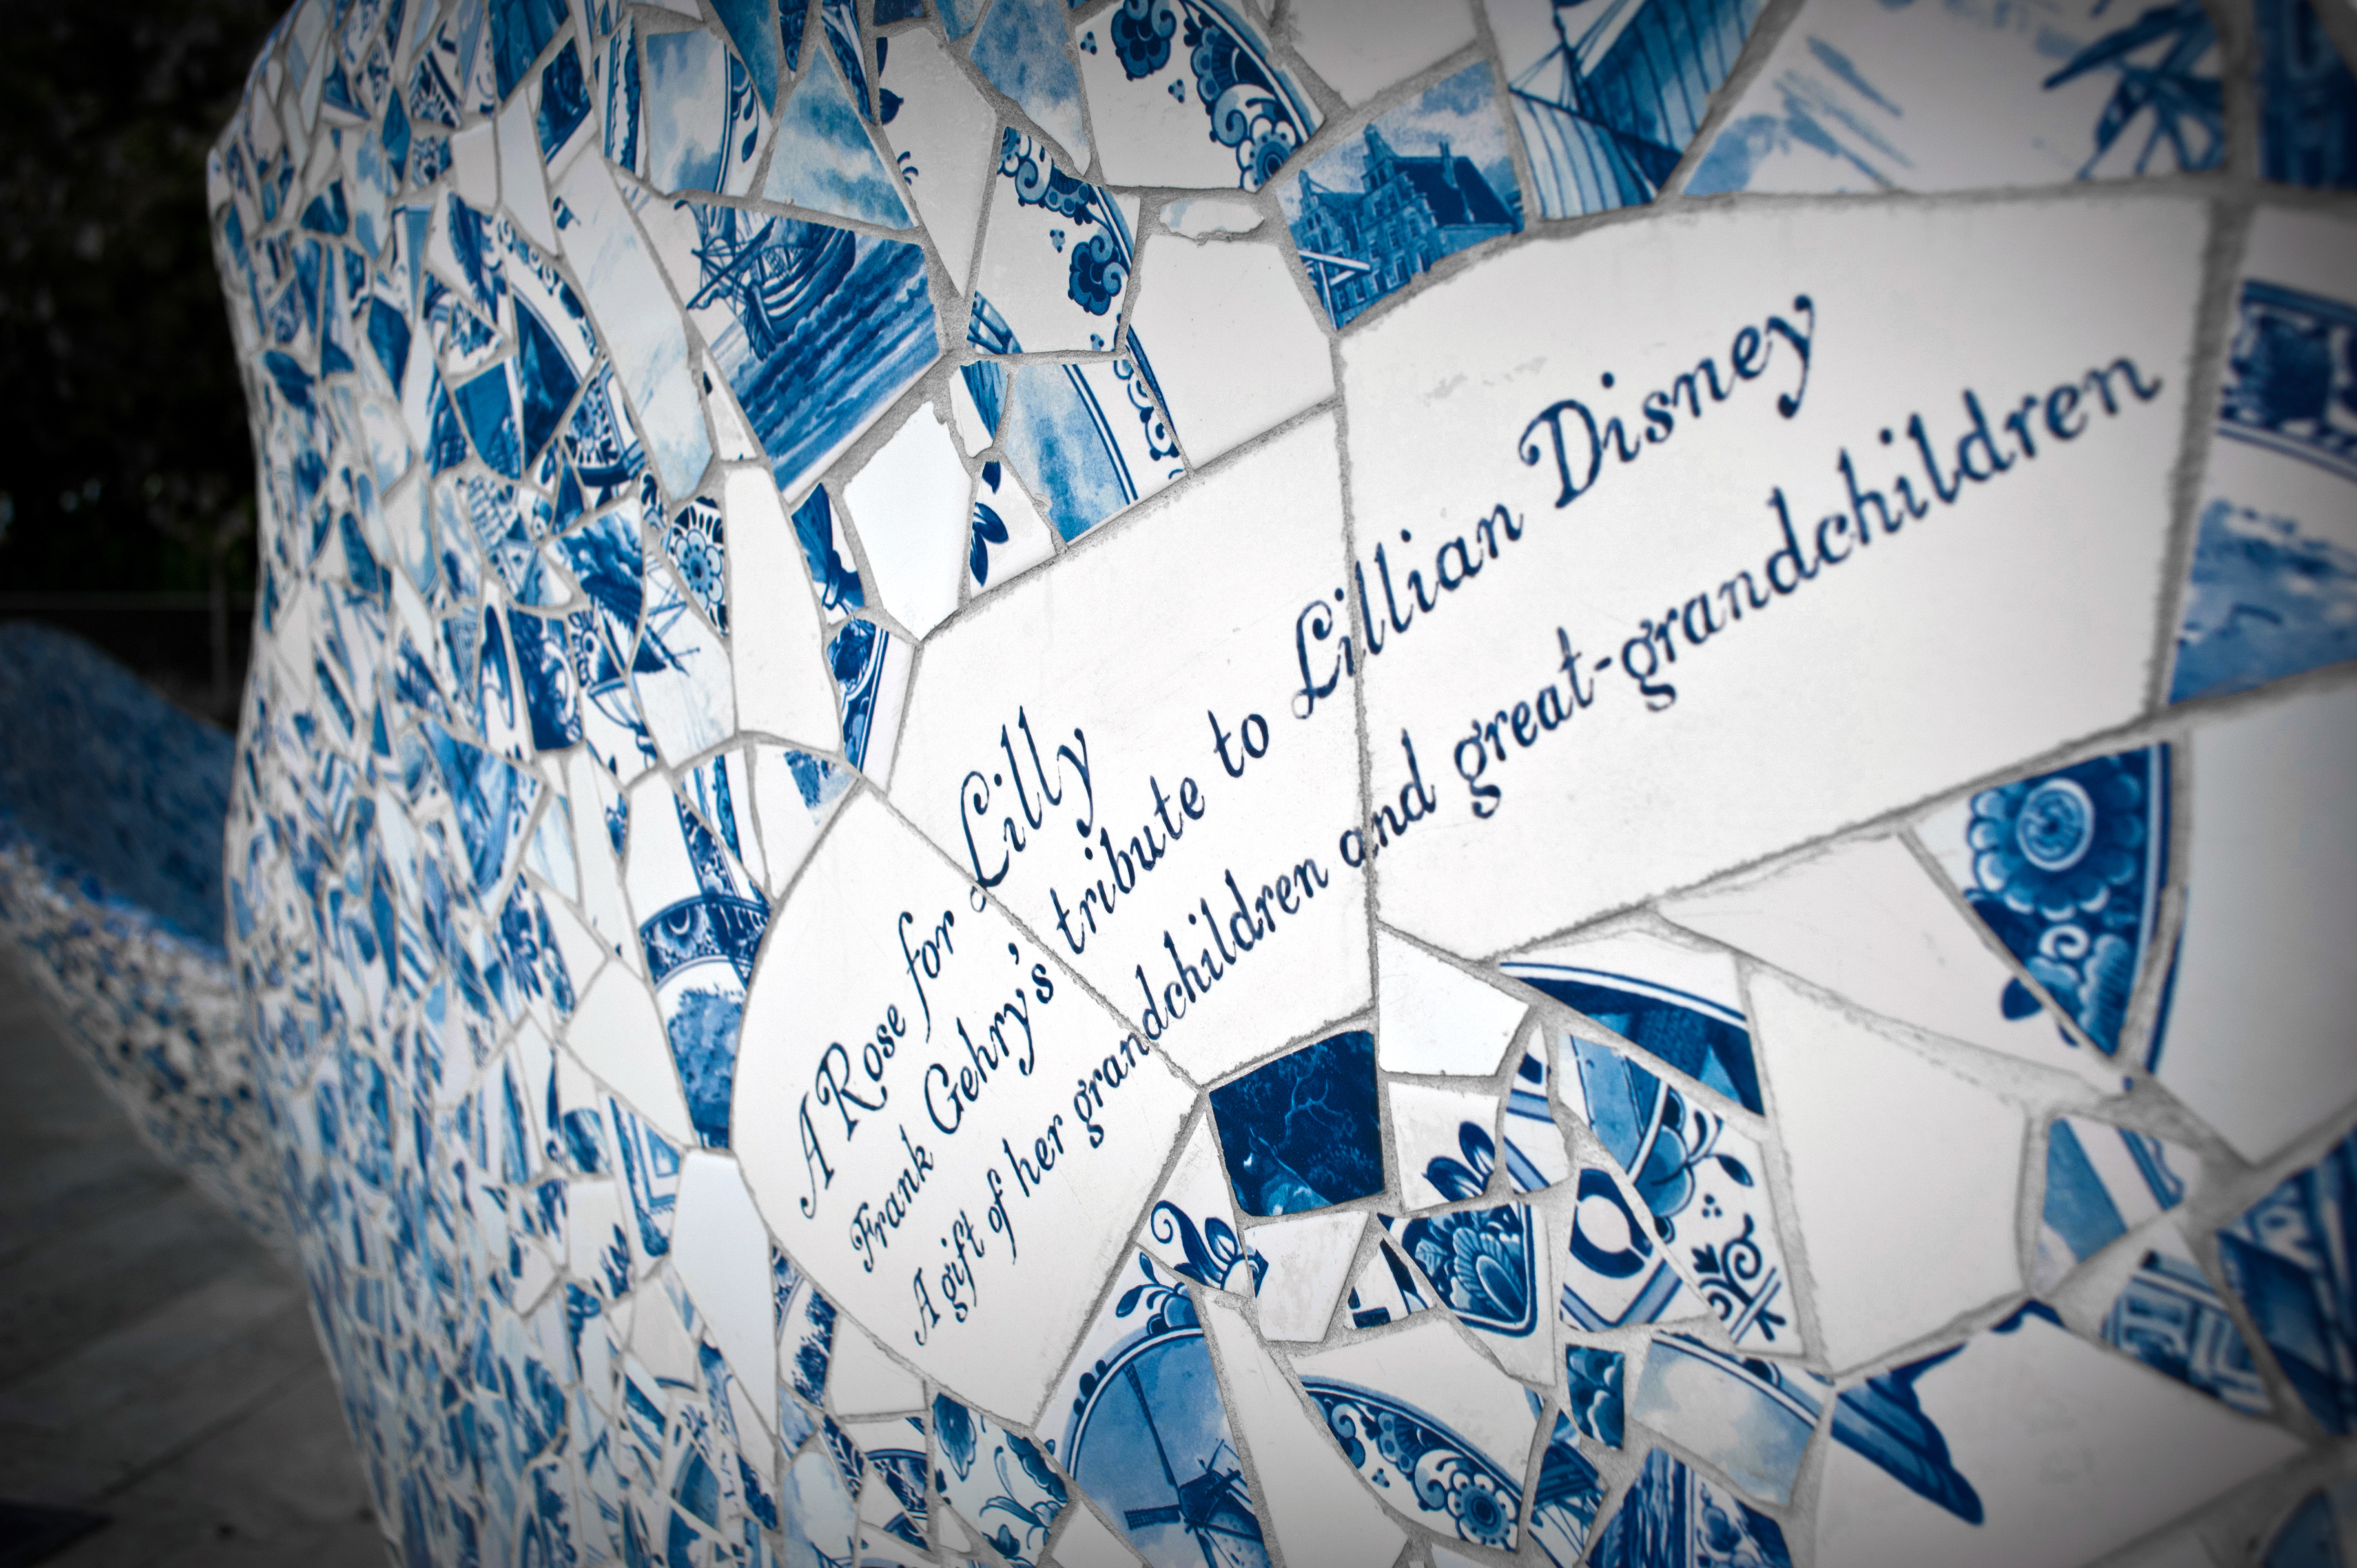 A Rose for Lilly
Frank Gehry's tribute to Lillian Disney
A gift of her grandchildren and great-grandchildren